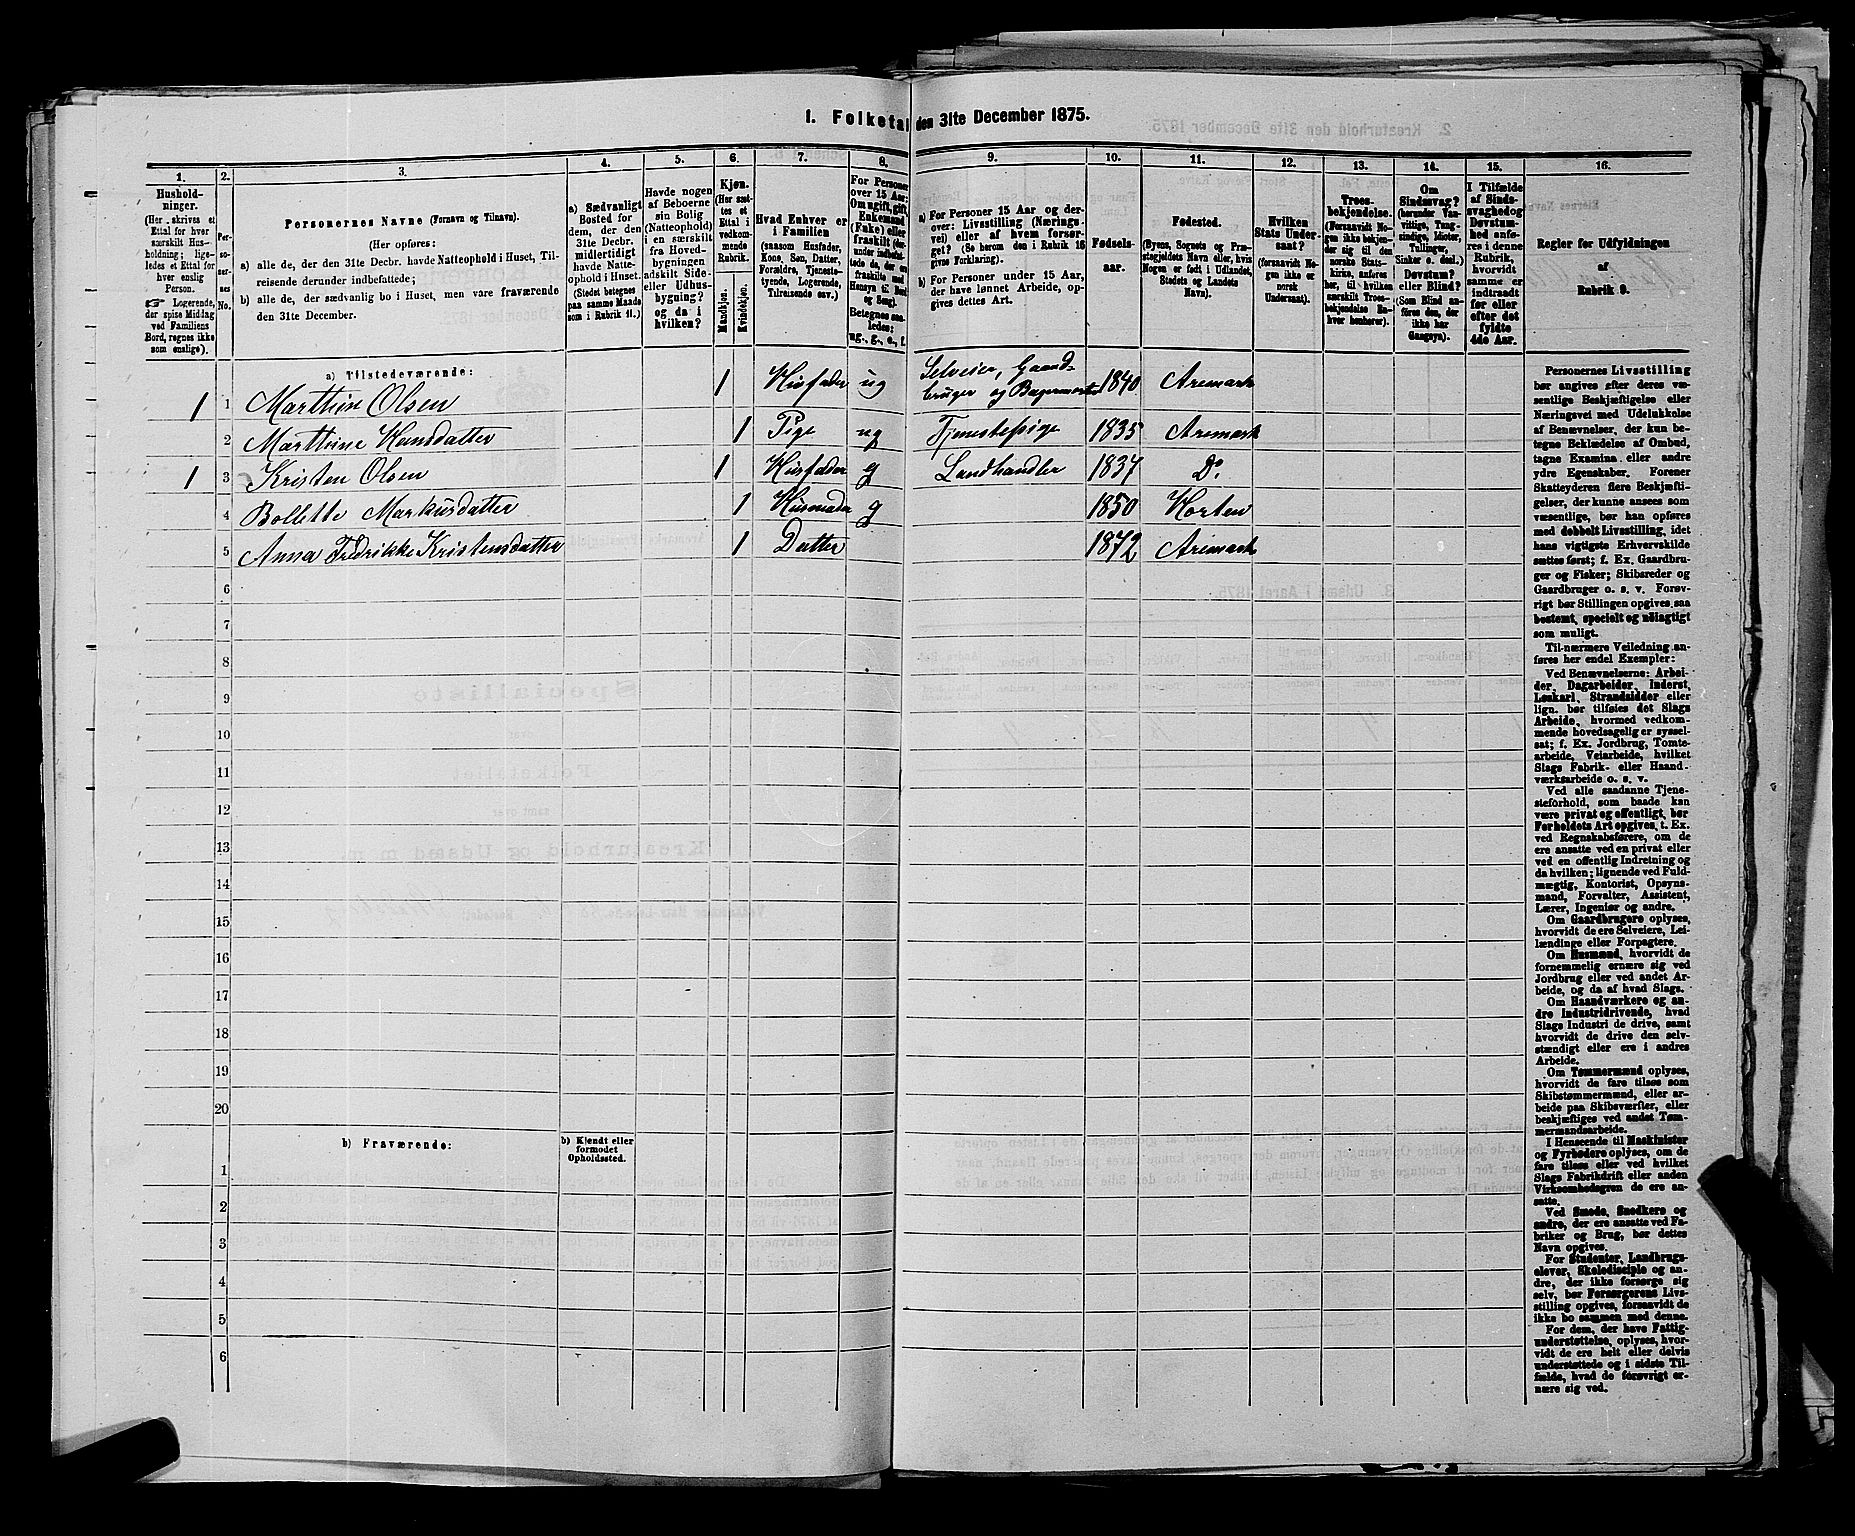 1. Folketal den 31te December 1875.
1. 2. 3. 4. 5. 6. 7. 8. 9. 10. 11. 12. 13. 14. 15. 16.
Hushold-
ninger.
(Her skrives et
Ettal for hver
særskilt Hus-
holdning; lige-
ledes et Ettal for
hver enslig
Person.
☞ Logerende,
der spise Middag
ved Familiens
Bord, regnes ikke
som enslige).
Per-
so-
ner-
nes
No.
Personernes Navne (Fornavn og Tilnavn).
(Her opføres:
a) alle de, der den 31te Decbr. havde Natteophold i Huset, Til-
reisende derunder indbefattede;
b) alle de, der sædvanlig bo i Huset, men vare fraværende
den 31te December.
a) Sædvanligt
Bosted for
dem, der den
31te Decbr.
midlertidigt
havde Natte-
ophold i Huset.
(Stedet betegnes
paa samme Maade
som i Rubrik 11.)
Havde nogen
af Beboerne
sin Bolig
(Natteophold)
i en særskilt
fra Hoved-
bygningen
adskilt Side-
eller Udhus-
bygning?
og da i
hvilken?
Kjøn.
(Her sæt-
tes et
Ettal i
vedkom-
mende
Rubrik.
Mandkjøn.
Kvindekjøn.
Hvad Enhver er
i Familien
(saasom Husfader,
Kone, Søn, Datter,
Forældre, Tjeneste-
tyende, Logerende,
Tilreisende osv.)
For Personer
over 15 Aar:
Om ugift, gift,
Enkemand
(Enke) eller
fraskilt
Betegnes saa-
ledes:
ug., g., e., f.
a) For Personer 15 Aar og der-
over: Livsstilling (Nærings-
vei) eller af hvem forsør-
get? (Se herom den i Rubrik 16
givne Forklaring).
b) For Personer under 15 Aar,
der have lønnet Arbeide, op-
gives dettes Art.
Fødsels-
aar.
Fødested.
(Byens, Sognets og Præ-
stegjeldets Navn eller, hvis
Nogen er født i Udlandet,
Stedets og Landets
Navn).
Hvilken
Stats Under-
saat?
(forsaavidt No-
gen ikke er
norsk
Undersaat).
Troes-
bekjendelse.
(Forsaavidt No-
gen ikke bekjen-
der sig til den
norske Stats-
kirke, anføres
her, til hvilken
særskilt Troes-
bekjendelse En-
hver henhører).
Om
Sindssvag?
(herunder Van-
vittige, Tung-
sindige, Idioter,
Tullinger,
Sinker o. desl.)
Døvstum?
eller Blind?
(Som Blind an-
føres den, der
ikke har
Gangsyn).
I Tilfælde
af Sinds-
svaghed og
Døvstum-
hed anføres
i denne
Rubrik,
hvorvidt
samme er
indtraadt
før eller
efter det
fyldte
4de Aar.
Regler for Udfyldningen
af
Rubrik 9.
a) Tilstedeværende:
1 1 Marthin Olsen 1 Husfader ug Selveier, Gaard-
bruger og 1840 Aremark
2 Marthine Hansdatter 1 Pige ug Tjenestepige 1835 Aremark
1 3 Kristen Olsen 1 Husfader g Landhandler 1837 Do
4 Bollette Markusdatter 1 Husmoder g 1850 Horten
5 Anna Fredrikke Kristensdatter 1 Datter 1872 Aremark
6
7
8
9
10
11
12
13
14
15
16
17
18
19
20
b) Fraværende:
b) Kjendt eller
formodet
Opholdssted.
1
2
3
4
5
6
Personernes Livsstilling
bør angives efter deres væ-
sentlige Beskjæftigelse eller
Næringsvei med Udelukkelse
af Benævnelser, der kun be-
tegne Beklædelse af Ombud,
tagne Examina eller andre
ydre Egenskaber. Forener
Skatteyderen flere Beskjæfti-
gelser, der kunne ansees som
væsentlige, bør han opføres
med dobbelt Livsstilling, idet
hans vigtigste Erhvervskilde
sættes først; f. Ex. Gaardbru-
ger og Fisker; Skibsreder og
Gaardbruger o. s. v. Forøv-
rigt bør Stillingen opgives saa
bestemt, specielt og nøiagtigt
som muligt.
Til nærmere Veiledning an-
føres her endel Exempler:
Ved Benævnelserne: Arbei-
der, Dagarbeider, Inderst,
Løskarl, Strandsidder eller
lign. bør tilføies det Slags
Arbeide, hvormed vedkom-
mende hovedsagelig er syssel-
sat; f. Ex. Jordbrug, Tomte-
arbeide, Veiarbeide, hvilket
Slags Fabrik- eller Haand-
værksarbeide o. s. v.
Ved alle saadanne Tjene-
steforhold, som baade kan
være privat og offentligt, bør
Forholdets Art opgives, t. Ex.
ved Regnskabsførere, om de
ere ansatte ved en privat eller
ved en offentlig Indretning og
da hvilken; lignende ved Fuld-
mægtig, Kontorist, Opsyns-
mand, Forvalter, Assistent,
Lærer, Ingeniør og andre.
Om Gaardbrugere oplyses,
hvorvidt de ere Selveiere, Lei-
lændinge eller Forpagtere.
Om Husmænd, hvorvidt de
fornemmelig ernære sig ved
Jordbrug eller ved andet Ar-
beide, og da af hvad Slags.
Om Haandværkere og an-
dre Industridrivende, hvad
Slags Industri de drive, samt
hvorvidt de drive den selv-
stændigt eller ere i andres
Arbeide.
Om Tømmermænd oplyses,
hvorvidt de fare tilsøs som
Skibstømmermænd, eller ar-
beide paa Skibsværfter, eller
beskjæftiges ved andet Tøm-
mermandsarbeide.
I Henseende til Maskinister
og Fyrbødere oplyses, om de
fare tilsøs eller ved hvilket
Slags Fabrikdrift eller anden
Virksomhedsgren de ere an-
satte.
Ved Smede, Snedkere og
andre, der ere ansatte ved Fa-
briker og Brug, bør dettes
Navn opgives.
For Studenter, Landbrugs-
elever, Skoledisciple og an-
dre, der ikke forsørge sig
selv, bør Forsørgerens Livs-
stilling opgives, forsaavidt de
ikke bo sammen med denne.
For dem, der have Fattig-
understøttelse, oplyses, hvor-
vidt de ere helt eller delvis
understøttede og i sidste Til-
fælde, hvad de forøvrigt er-
nære sig ved.